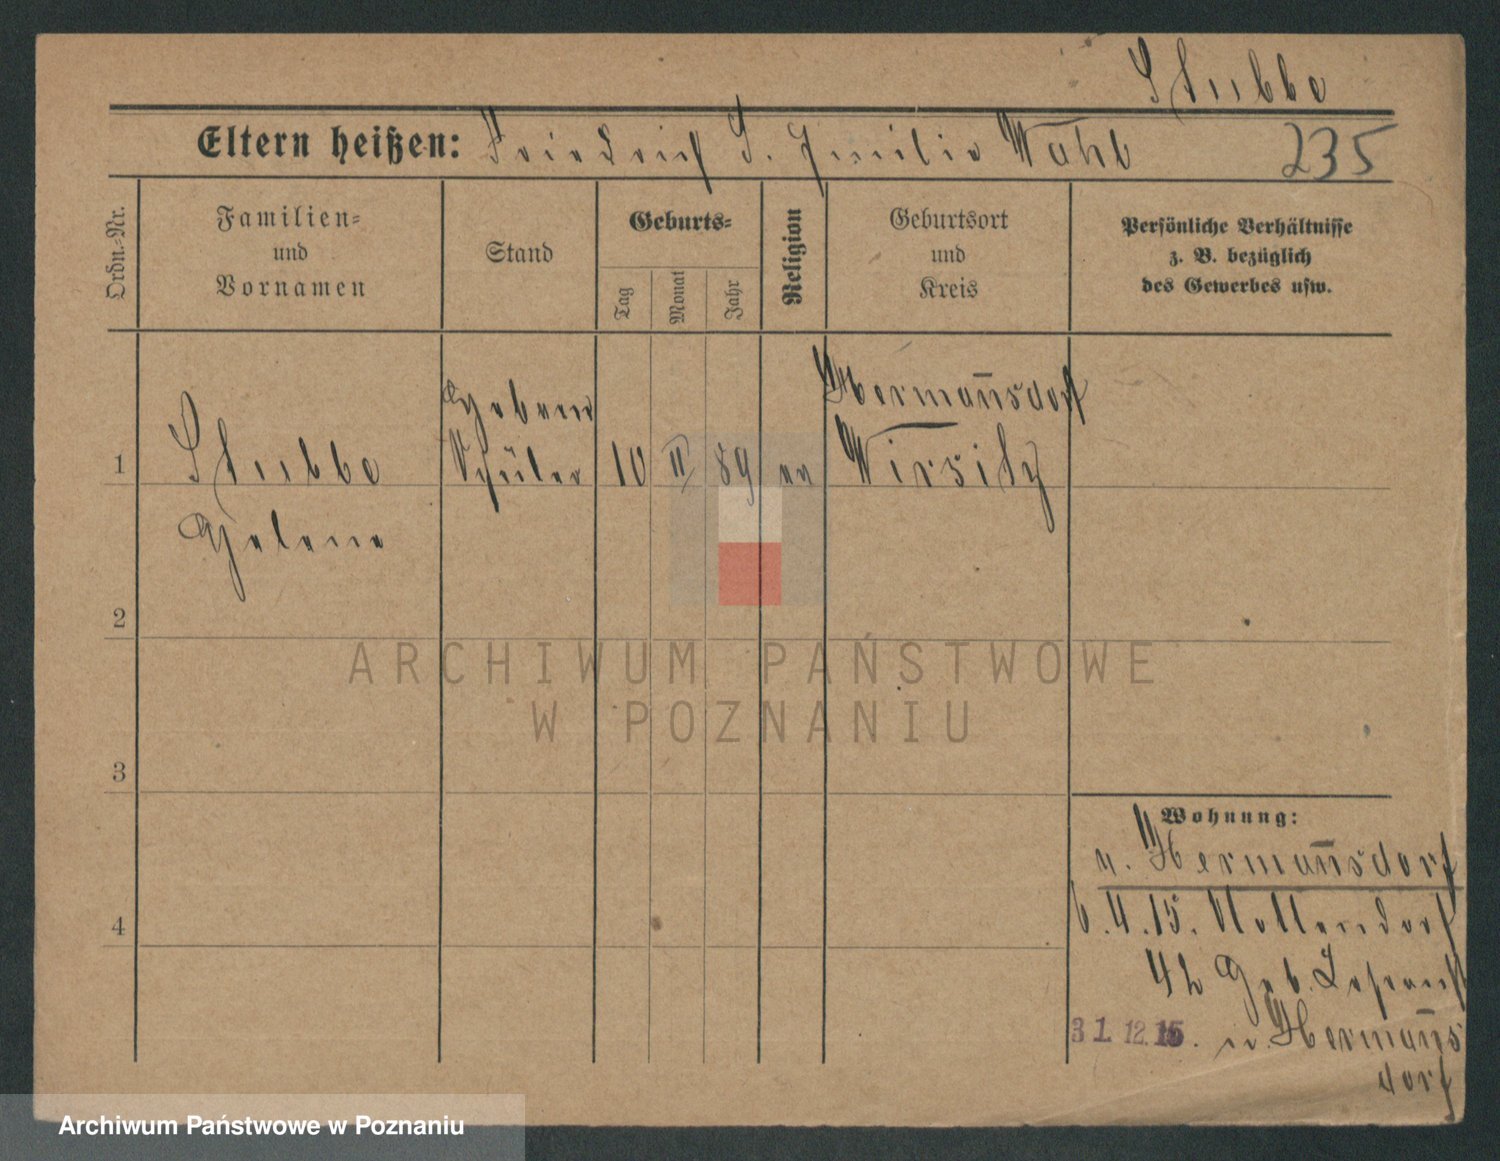 Stubbe
Eltern heißen: Friedrich S. Emilie Wahl 235
Ordn.-Nr.
Familien-
und
Vornamen
Stand
Geburts-
Tag
Monat
Jahr
Religion
Geburtsort
und
Kreis
Persönliche Verhältnisse
z. B. bezüglich
des Gewerbes usw.
Herman̄sdorf
1 Stubbe Schüler 10 II 89 ev Wirsitz
Helene
2
ARCHIWUM PAŃSTWOWE
W POZNANIU
3
Wohnung:
n. Herman̄sdorf
4
6.4.15. Nollendorf
42 Geb.
31.12.15. n. Herman̄s
dorf
Archiwum Państwowe w Poznaniu